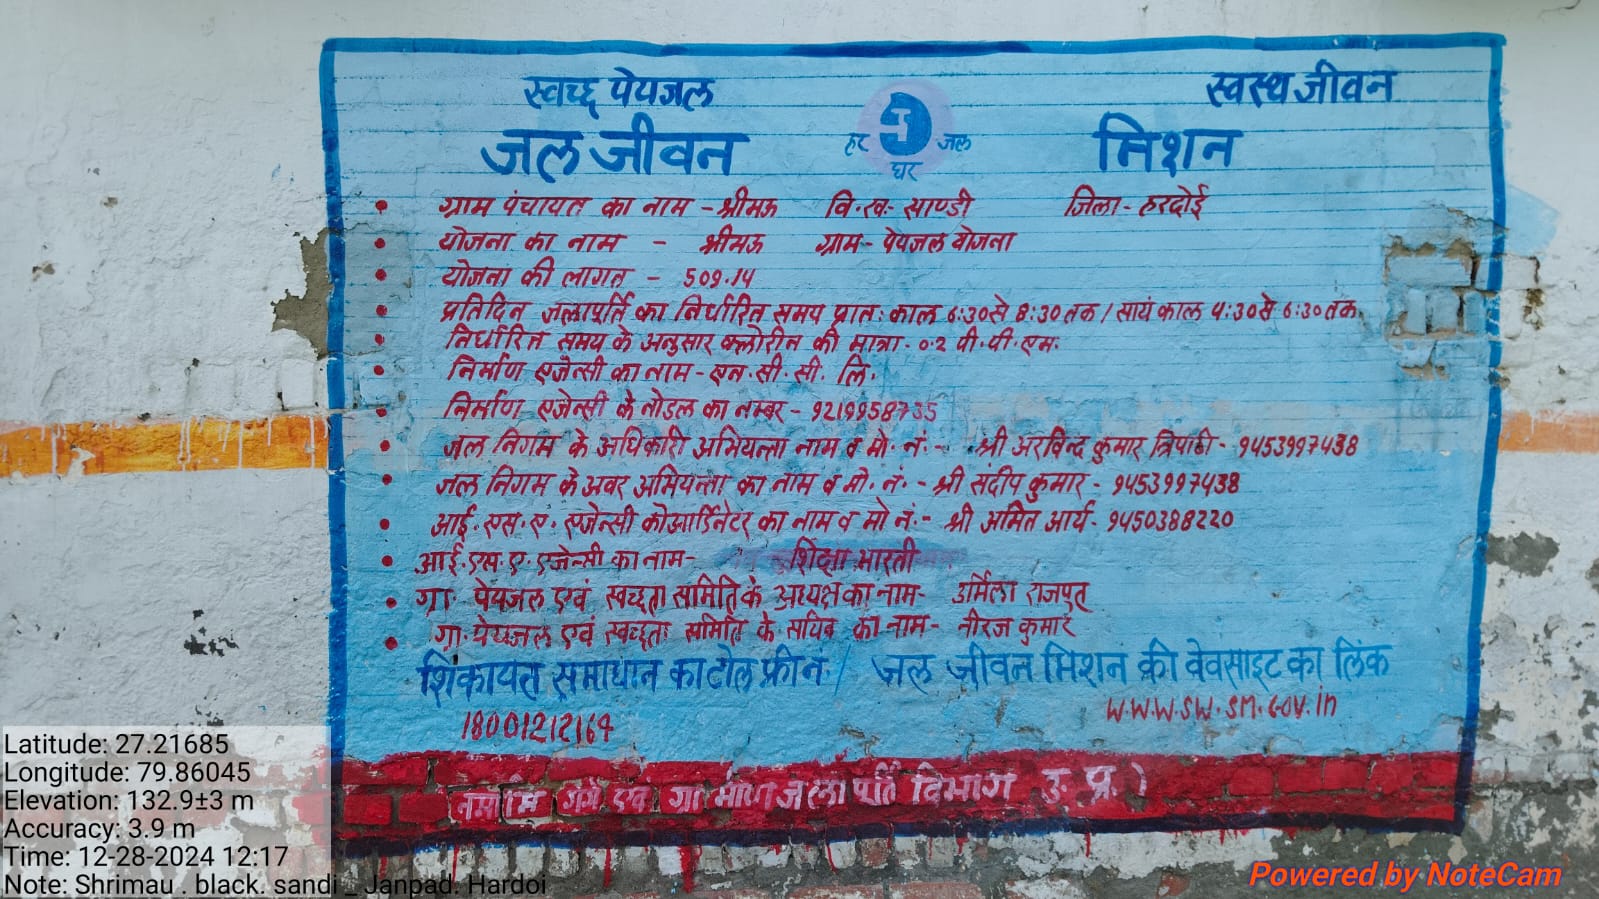 स्वच्छ पेयजल स्वस्थ जीवन
जल जीवन हर घर जल मिशन
• ग्राम पंचायत का नाम - श्रीमऊ वि.ख- साण्डी जिला - हरदोई
• योजना का नाम - श्रीमऊ ग्राम - पेयजल योजना
• योजना की लागत - 509.14
• प्रतिदिन जलापूर्ति का निर्धारित समय प्रातः काल 6:30 से 8:30 तक / सायं काल 4:30 से 6:30 तक
• निर्धारित समय के अनुसार क्लोरीन की मात्रा - 0.2 पी.पी.एम.
• निर्माण एजेन्सी का नाम - एन.सी.सी. लि.
• निर्माण एजेन्सी के नोडल का नम्बर - 9219958735
• जल निगम के अधिकारी अभियन्ता नाम व मो. नं. - श्री अरविन्द कुमार त्रिपाठी - 9453997438
• जल निगम के अवर अभियन्ता का नाम व मो. नं. - श्री संदीप कुमार - 9453997438
• आई.एस.ए. एजेन्सी कोआर्डिनेटर का नाम व मो नं. - श्री अमित आर्य - 9450388220
• आई.एस.ए. एजेन्सी का नाम - शिक्षा भारती
• ग्रा. पेयजल एवं स्वच्छता समिति के अध्यक्ष का नाम - उर्मिला राजपूत
• ग्रा. पेयजल एवं स्वच्छता समिति के सचिव का नाम - नीरज कुमार
शिकायत समाधान का टोल फ्री नं. / जल जीवन मिशन की वेवसाइट का लिंक
18001212164 W.W.W.SW.SM.GOV.in
नमामि गंगे एवं ग्रामीण जलापूर्ति विभाग उ.प्र.)
Latitude: 27.21685
Longitude: 79.86045
Elevation: 132.9±3 m
Accuracy: 3.9 m
Time: 12-28-2024 12:17
Note: Shrimau . black. sandi _ Janpad. Hardoi
Powered by NoteCam